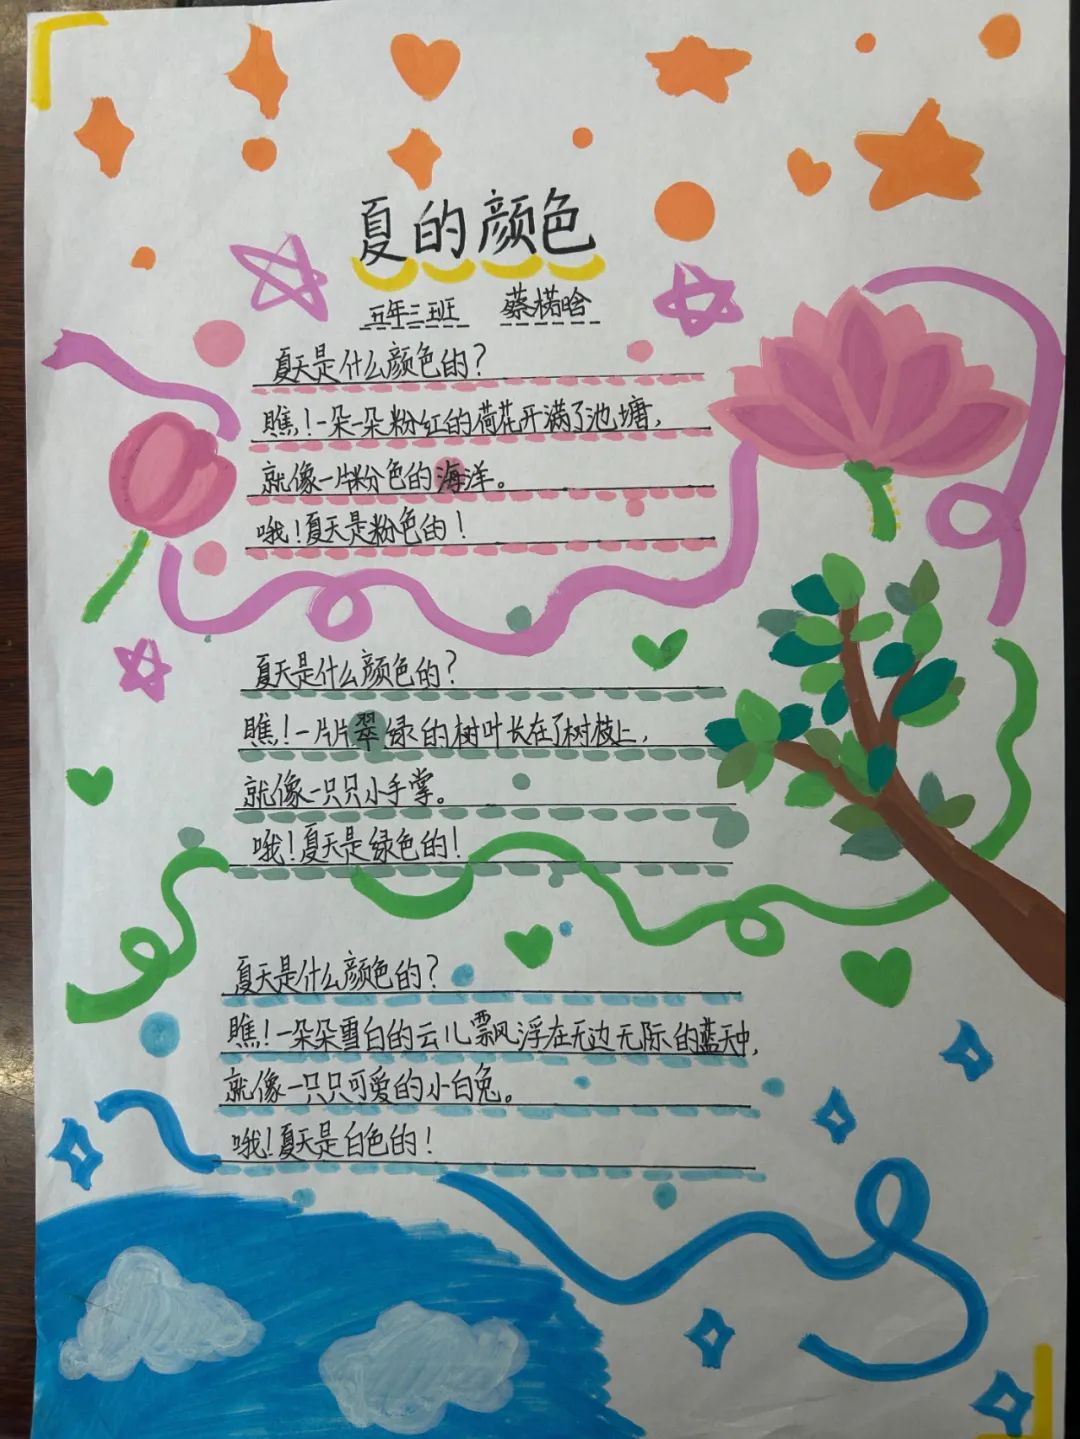 夏的颜色
五年三班 蔡楉晗
夏天是什么颜色的？
瞧！一朵一朵粉红的荷花开满了池塘，
就像一片粉色的海洋。
哦！夏天是粉色的！
夏天是什么颜色的？
瞧！一片片翠绿的树叶长在了树枝上，
就像一只只小手掌。
哦！夏天是绿色的！
夏天是什么颜色的？
瞧！一朵朵雪白的云儿飘浮在无边无际的蓝天中，
就像一只只可爱的小白兔。
哦！夏天是白色的！